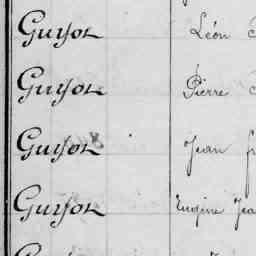 Guyot Léon
Guyot Pierre
Guyot Jean
Guyot Eugène Jea